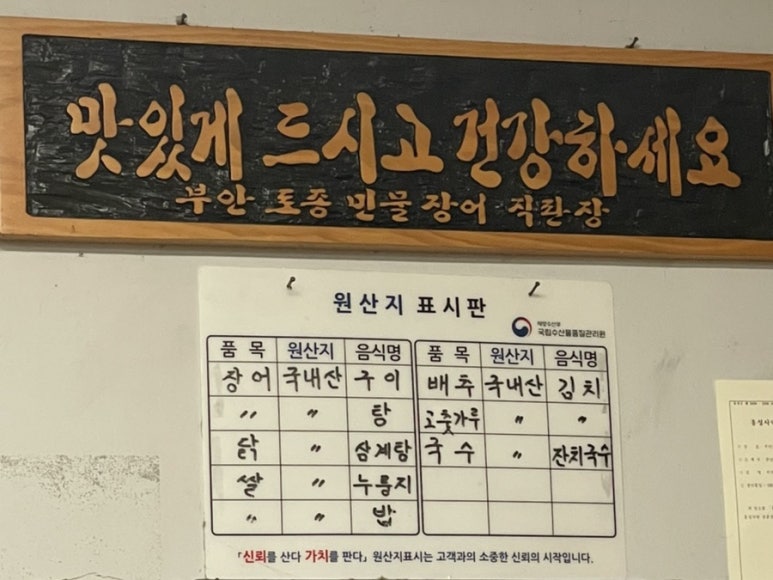 맛있게 드시고 건강하세요
부안 토종 민물장어 직판장
원산지 표시판
해양수산부
국립수산물품질관리원
품 목 원산지 음식명 품 목 원산지 음식명
장어 국내산 구이 배추 국내산 김치
〃 〃 탕 고춧가루 〃 〃
닭 〃 삼계탕 국수 〃 잔치국수
쌀 〃 누룽지
〃 〃 밥
「신뢰를 산다 가치를 판다」 원산지표시는 고객과의 소중한 신뢰의 시작입니다.